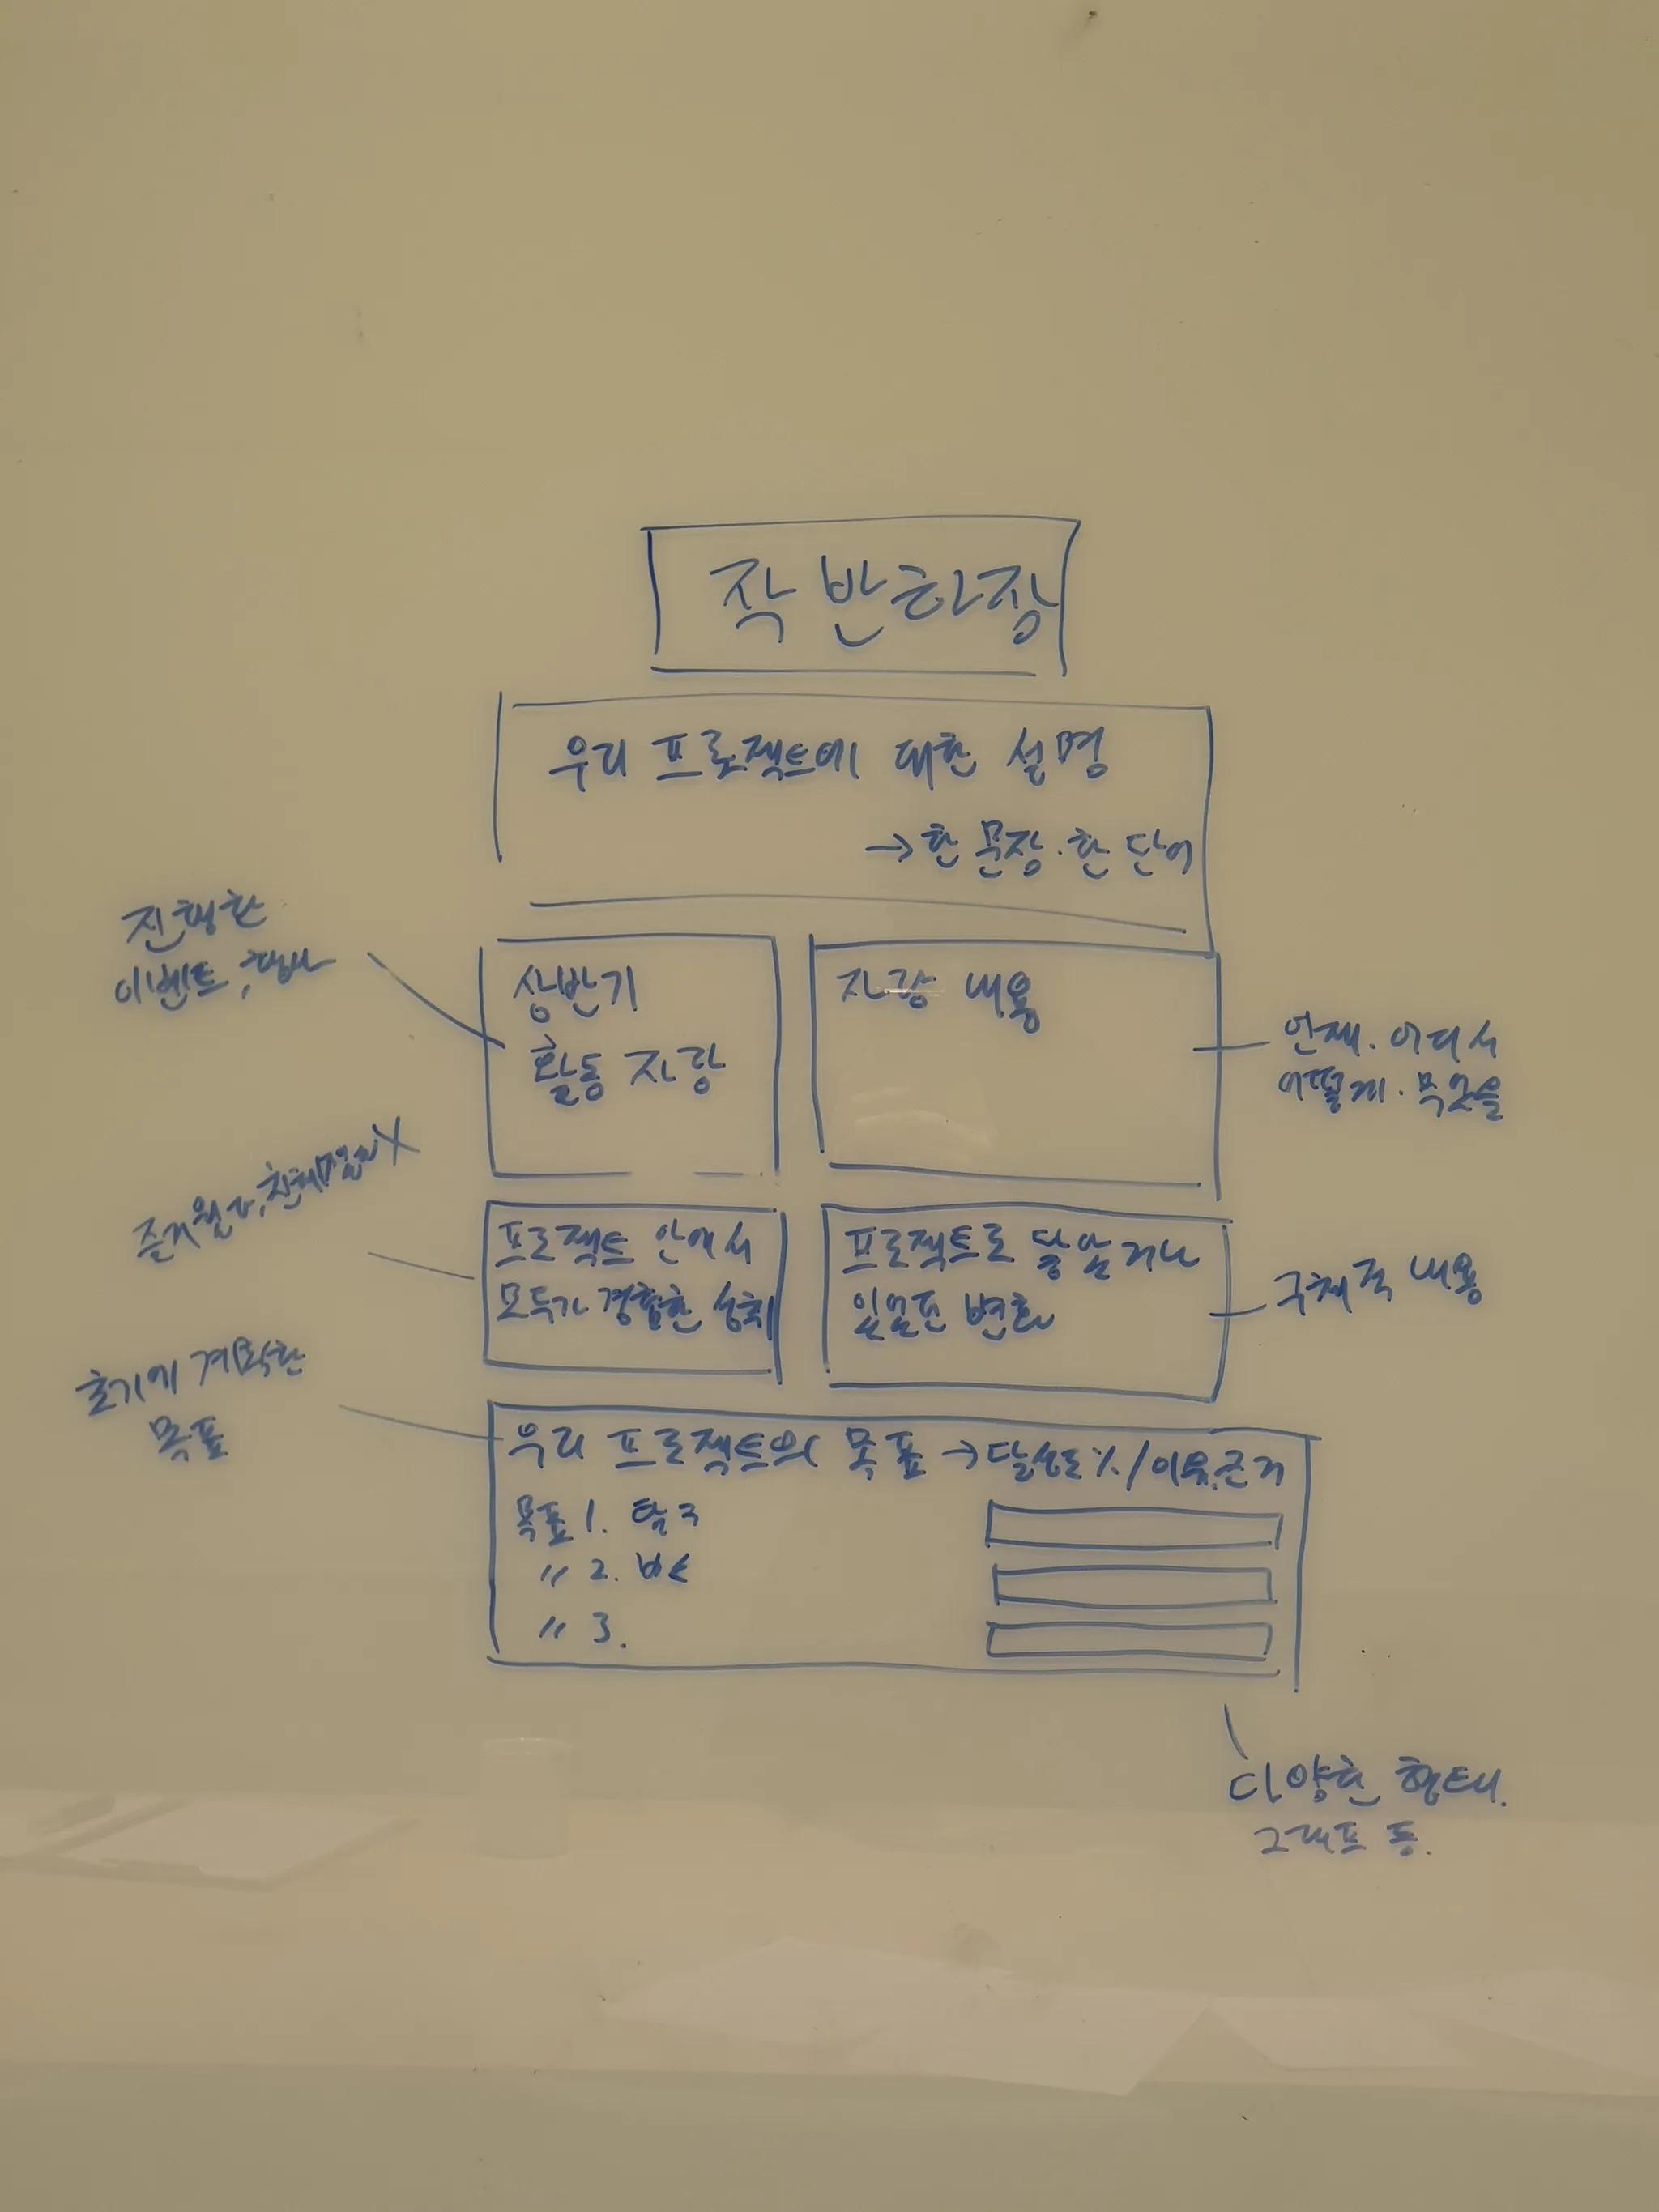 작반하장
우리 프로젝트에 대한 설명
→ 한 문장·한 단어
진행한
이벤트, 행사
상반기
활동 자랑
자랑 내용
언제·어디서
어떻게·무엇을
즐거웠다, X
프로젝트 안에서
모두가 경험한 성취
프로젝트로 동
변화
구체적 내용
초기에 계획한
목표
우리 프로젝트의 목표 → 달성도 % / 이유, 근거
목표 1. 탐구
〃 2.
〃 3.
다양한 형태.
그래프 등.